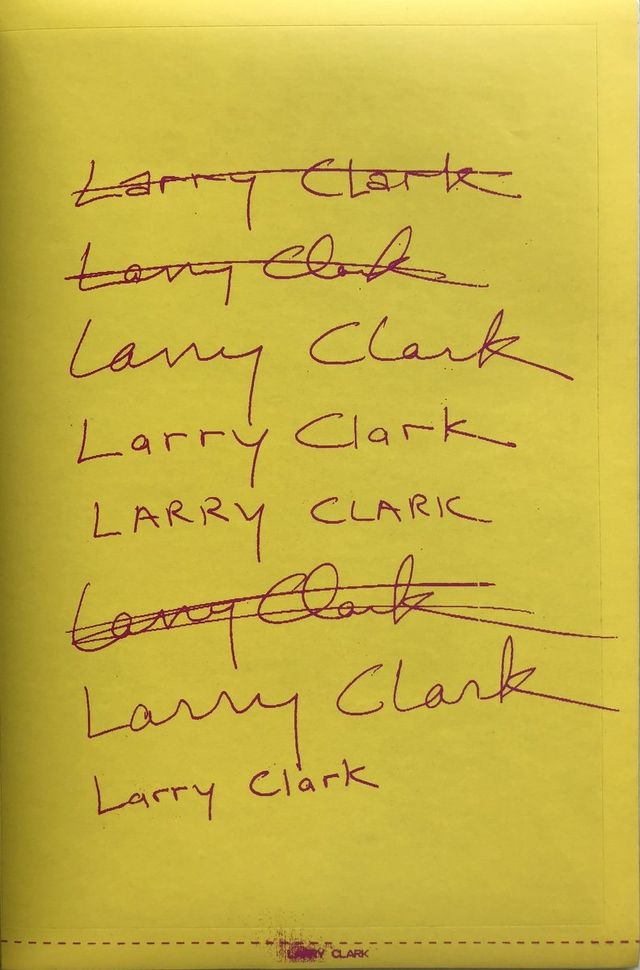 Larry Clark
Larry Clark
Larry Clark
Larry Clark
LARRY CLARK
Larry Clark
Larry Clark
Larry Clark
LARRY CLARK